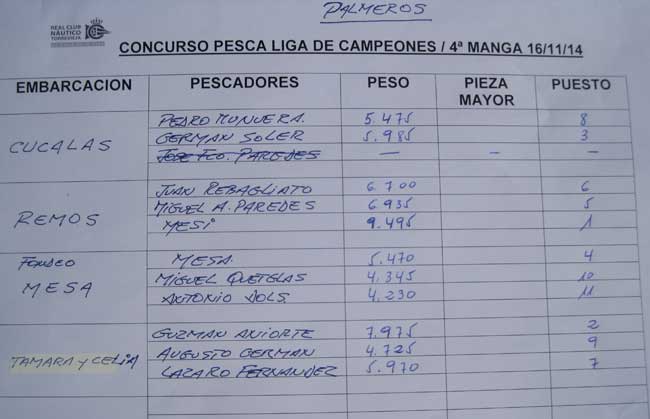 PALMEROS
REAL CLUB
NÁUTICO
TORREVIEJA
CONCURSO PESCA LIGA DE CAMPEONES / 4ª MANGA 16/11/14
EMBARCACION PESCADORES PESO PIEZA MAYOR PUESTO
CUCALAS
PEDRO MUNUERA. 5.475 8
GERMAN SOLER 5.985 3
JOSE FCO. PAREDES — — —
REMOS
JUAN REBAGLIATO 6.700 6
MIGUEL A. PAREDES 6.935 5
MESI 9.495 1
FONDEO
MESA
MESA. 5.470 4
MIGUEL QUETGLAS 4.345 10
ANTONIO DOLS. 4.230 11
TAMARA Y CELIA
GUZMAN ANIORTE 7.975 2
AUGUSTO GERMAN 4.725 9
LAZARO FERNANDEZ 5.970 7